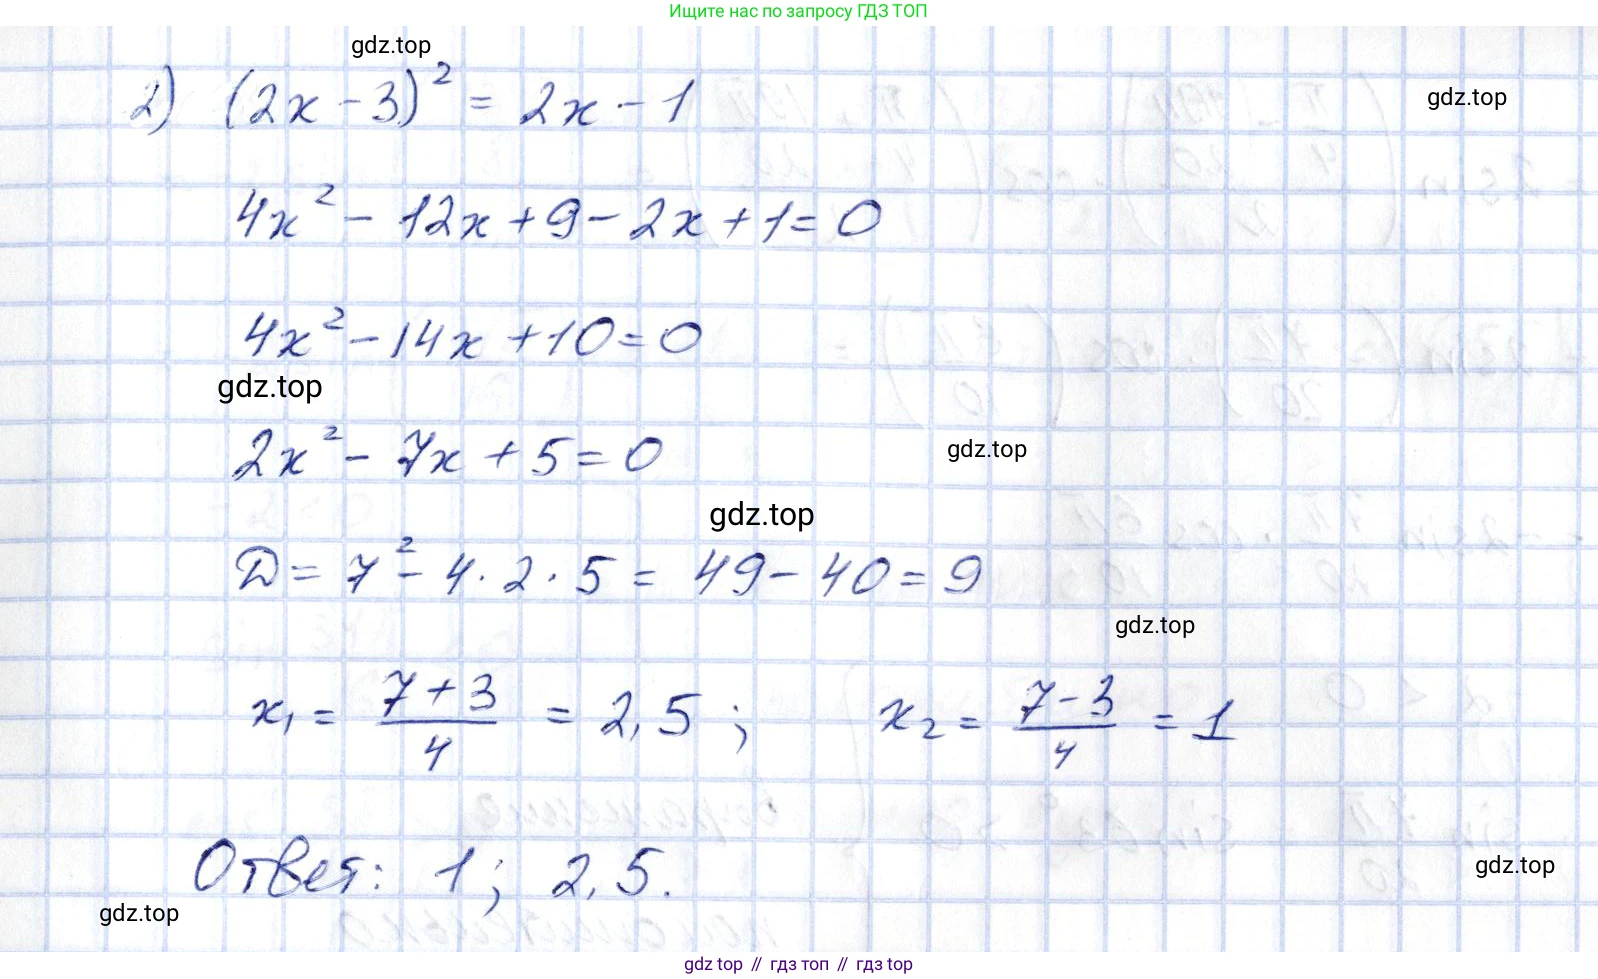 Ищите нас по запросу ГДЗ ТОП
gdz.top
2) (2x - 3)² = 2x - 1
gdz.top
4x² - 12x + 9 - 2x + 1 = 0
4x² - 14x + 10 = 0
gdz.top
2x² - 7x + 5 = 0
gdz.top
gdz.top
D = 7² - 4 · 2 · 5 = 49 - 40 = 9
gdz.top
x₁ = (7 + 3)/4 = 2,5 ; x₂ = (7 - 3)/4 = 1
Ответ: 1; 2,5.
gdz.top
gdz.top
gdz top // гдз топ // гдз top